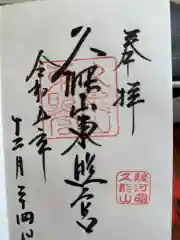 奉拝
久能山東照宮
令和五年
十二月二十四日
駿河國
久能山